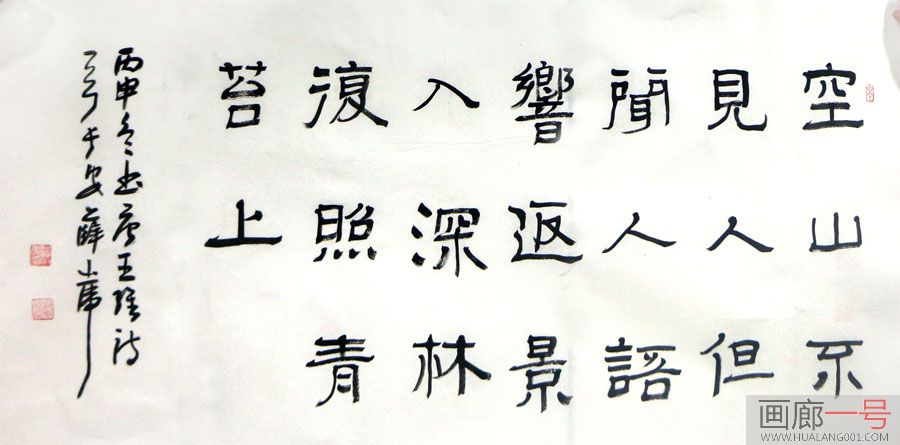 空山不
見人但
聞人語
響返景
入深林
復照青
苔上
丙申冬書唐王維詩
于長安薛小虎
画廊一号
WWW.HUALANG001.COM